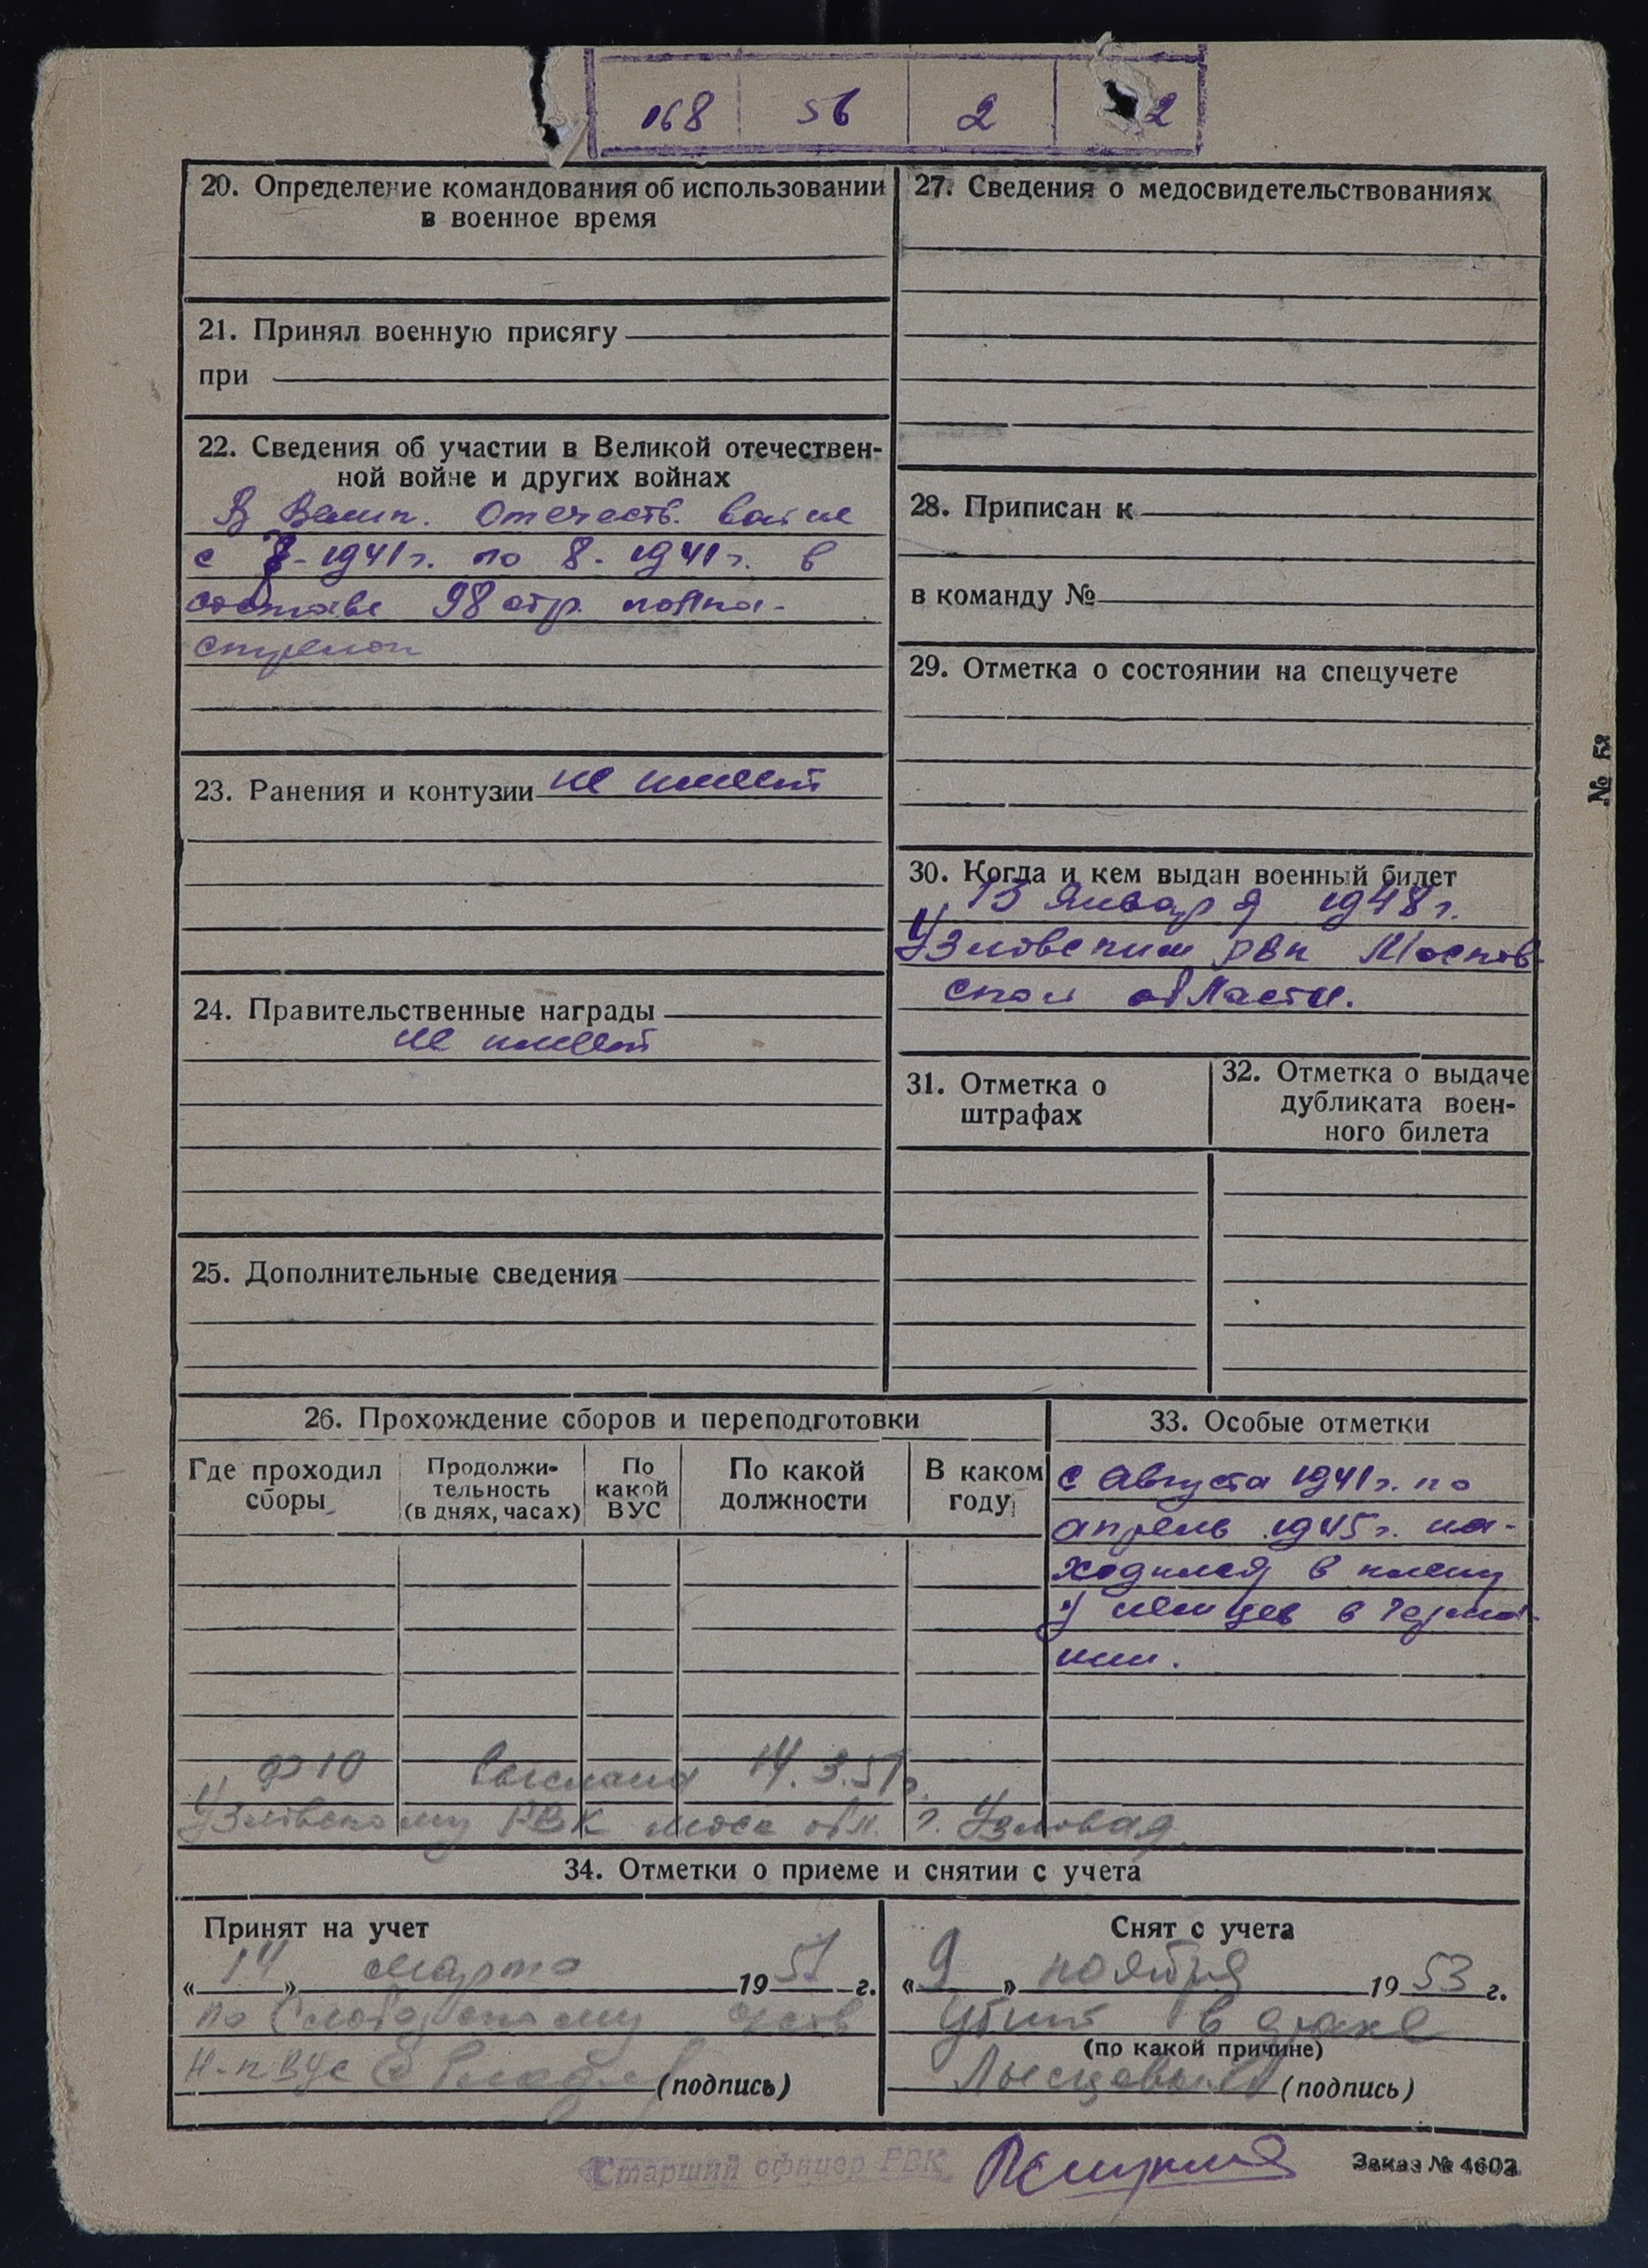 168 56 2 2
20. Определение командования об использовании
в военное время
21. Принял военную присягу
при
22. Сведения об участии в Великой отечествен-
ной войне и других войнах
В Велик. Отечеств. войне
с 7-1941г. по 8-1941г. в
составе 98 стр. полка-
стрелок
23. Ранения и контузии не имеет
24. Правительственные награды
не имеет
25. Дополнительные сведения
27. Сведения о медосвидетельствованиях
28. Приписан к
в команду №
29. Отметка о состоянии на спецучете
30. Когда и кем выдан военный билет
13 Января 1948г.
Узловским рвк Москов-
ской области.
31. Отметка о
штрафах
32. Отметка о выдаче
дубликата воен-
ного билета
26. Прохождение сборов и переподготовки
Где проходил
сборы
Продолжи-
тельность
(в днях, часах)
По
какой
ВУС
По какой
должности
В каком
году
33. Особые отметки
с Августа 1941г. по
апрель 1945г. на-
ходился в плену
у немцев в Герма-
нии.
Ф10 выслана 14.3.51г.
Узловскому РВК моск обл. г. Узловая
34. Отметки о приеме и снятии с учета
Принят на учет
«14» марта 1951 г.
по Слободскому
Н-к ВУС (подпись)
Снят с учета
«9» ноября 1953 г.
Убит в драке
(по какой причине)
(подпись)
Старший офицер РВК
Заказ № 4602
№ 52